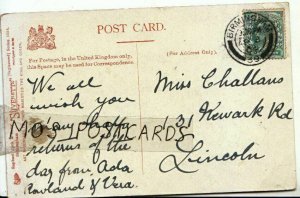 POST CARD.
For Postage, in the United Kingdom only,
this Space may be used for Correspondence.
(For Address Only.)
BIRMINGHAM
We all
wish you
many happy
returns of the
day from Ada
Rowland & Vera.
Miss Challans
31 Newark Rd
Lincoln
MO'S POSTCARDS